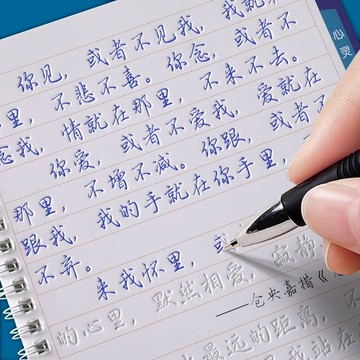 你见，或者不见我，我就
里，不悲不喜。你念，或者不
念我，情就在那里，不来不去。
你爱，或者不爱我，爱就在
那里，不增不减。你跟，或者不
跟我，我的手就在你手里，
不弃。
来我怀里，或
的心里，默然相爱，寂静
——仓央嘉措《
最远的距离，
我站在
心灵